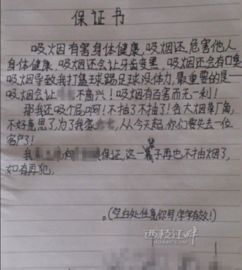 保证书
吸烟有害身体健康,吸烟还危害他人
身体健康,吸烟还会让牙齿变黑,吸烟还会有口臭
吸烟导致我打篮球踢足球没体力,最重要的是
吸烟会让 不高兴!吸烟有百害而无一利!
那我还吸个屁啊!不抽了不抽了!各大烟草厂商,
不好意思了,为了我家 ,从今天起,你们要失去一位
客户了!
我 向 保证,这一辈子再也不抽烟了,
如有再犯,
(空白处任意你写,签字有效!)
西祠江畔